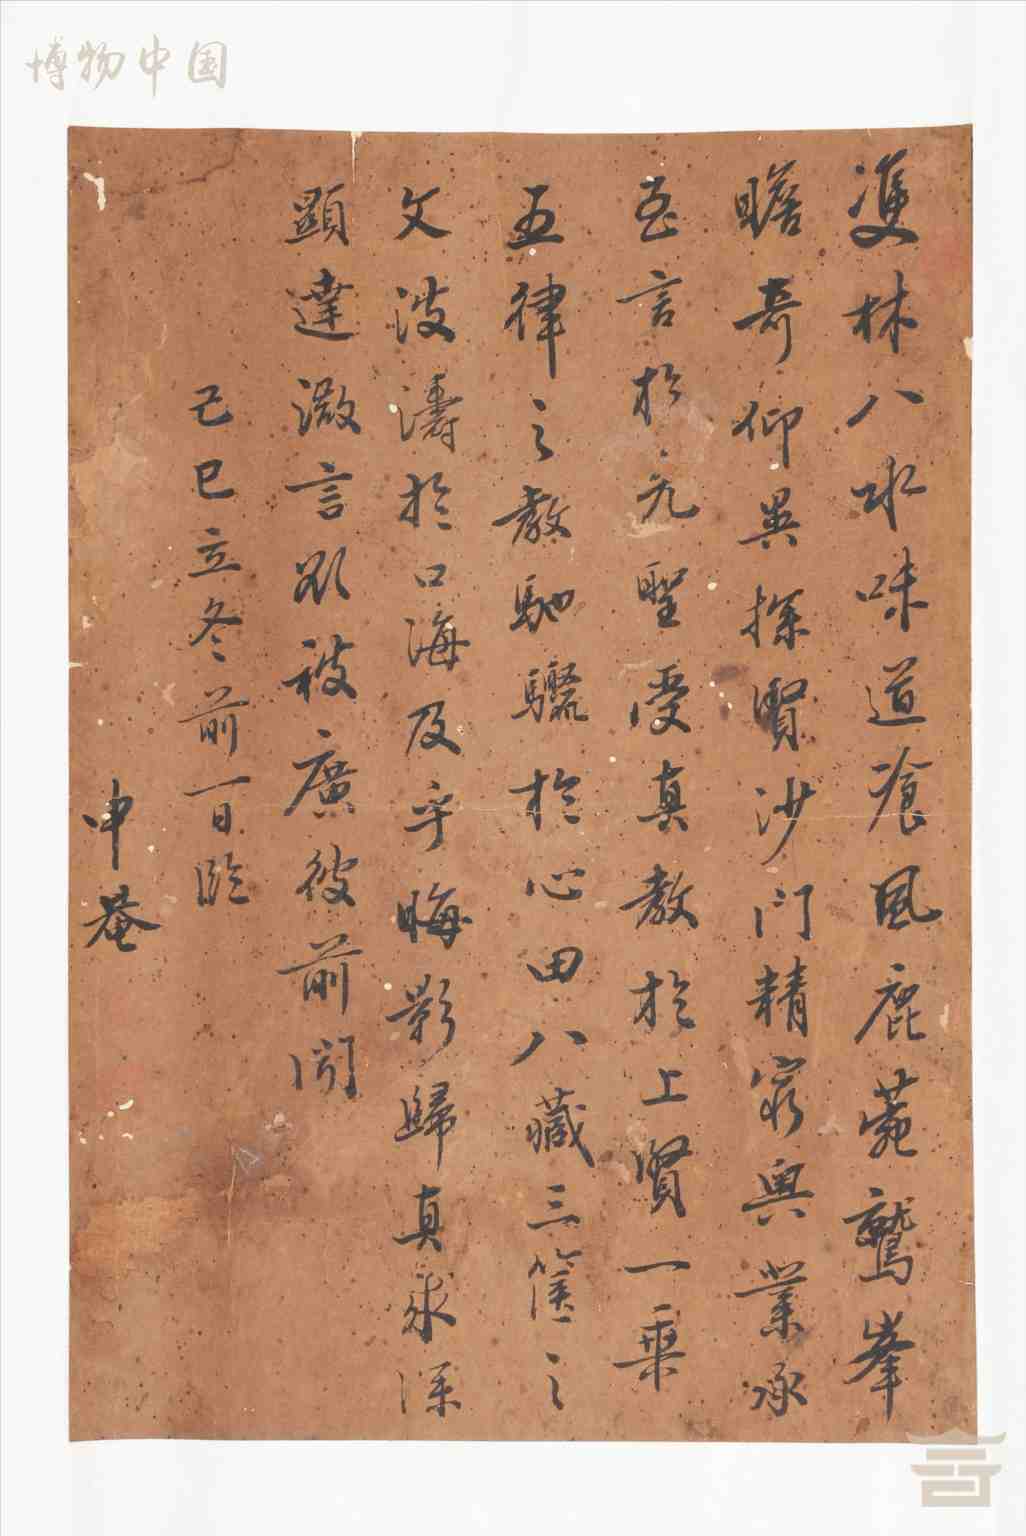 博物中国
雙林八水味道飡風鹿菀鷲峯
瞻奇仰異探賢沙門精窮奥業承
至言於先聖受真教於上賢一乘
五律之教馳驪於心田八藏三篋之
文波濤於口海及乎晦影歸真求深
顯達微言欲被廣彼前聞
己巳立冬前一日臨
申菴